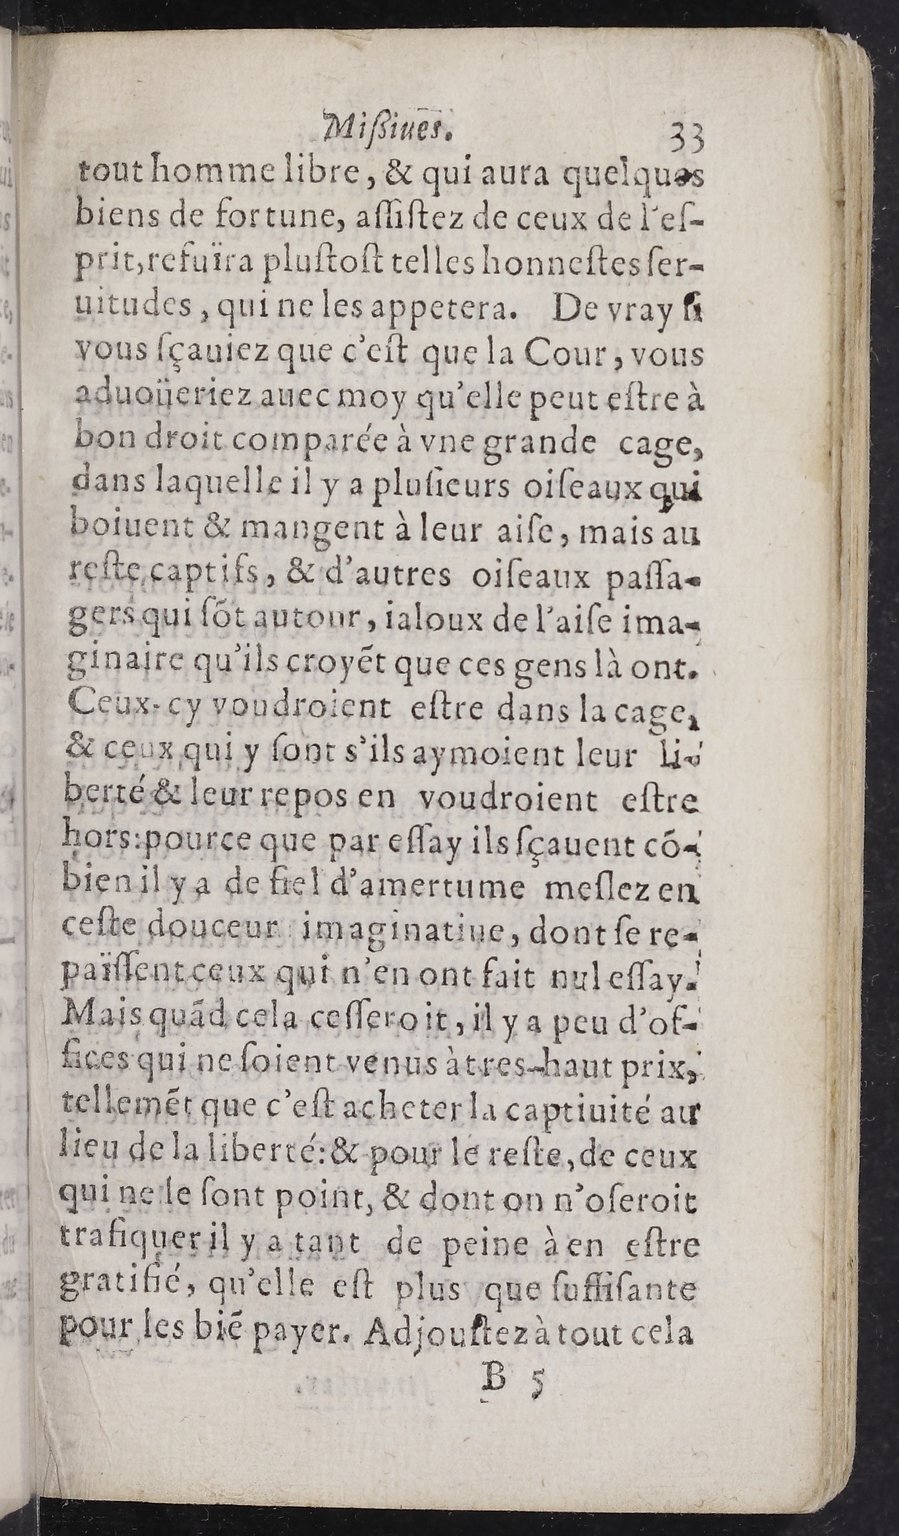 Mißiues. 33
tout homme libre, & qui aura quelques
biens de fortune, aſſiſtez de ceux de l'eſ-
prit, refuïra pluſtoſt telles honneſtes ſer-
uitudes, qui ne les appetera. De vray ſi
vous ſçauiez que c'eſt que la Cour, vous
aduoüeriez auec moy qu'elle peut eſtre à
bon droit comparée à vne grande cage,
dans laquelle il y a pluſieurs oiſeaux qui
boiuent & mangent à leur aiſe, mais au
reſte captifs, & d'autres oiſeaux paſſa-
gers qui ſõt autour, ialoux de l'aiſe ima-
ginaire qu'ils croyẽt que ces gens là ont.
Ceux-cy voudroient eſtre dans la cage,
& ceux qui y ſont s'ils aymoient leur li-
berté & leur repos en voudroient eſtre
hors: pource que par eſſay ils ſçauent cõ-
bien il y a de fiel d'amertume meſlez en
ceſte douceur imaginatiue, dont ſe re-
païſſent ceux qui n'en ont fait nul eſſay.
Mais quãd cela ceſſeroit, il y a peu d'of-
fices qui ne ſoient venus à tres-haut prix,
tellemẽt que c'eſt acheter la captiuité au
lieu de la liberté: & pour le reſte, de ceux
qui ne le ſont point, & dont on n'oſeroit
trafiquer il y a tant de peine à en eſtre
gratifié, qu'elle eſt plus que ſuffiſante
pour les biẽ payer. Adjouſtez à tout cela
B 5